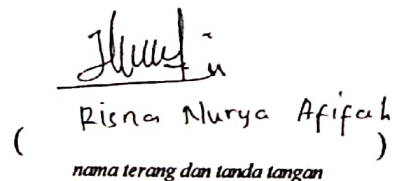 Risna Nurya Afifah
( )
nama terang dan tanda tangan